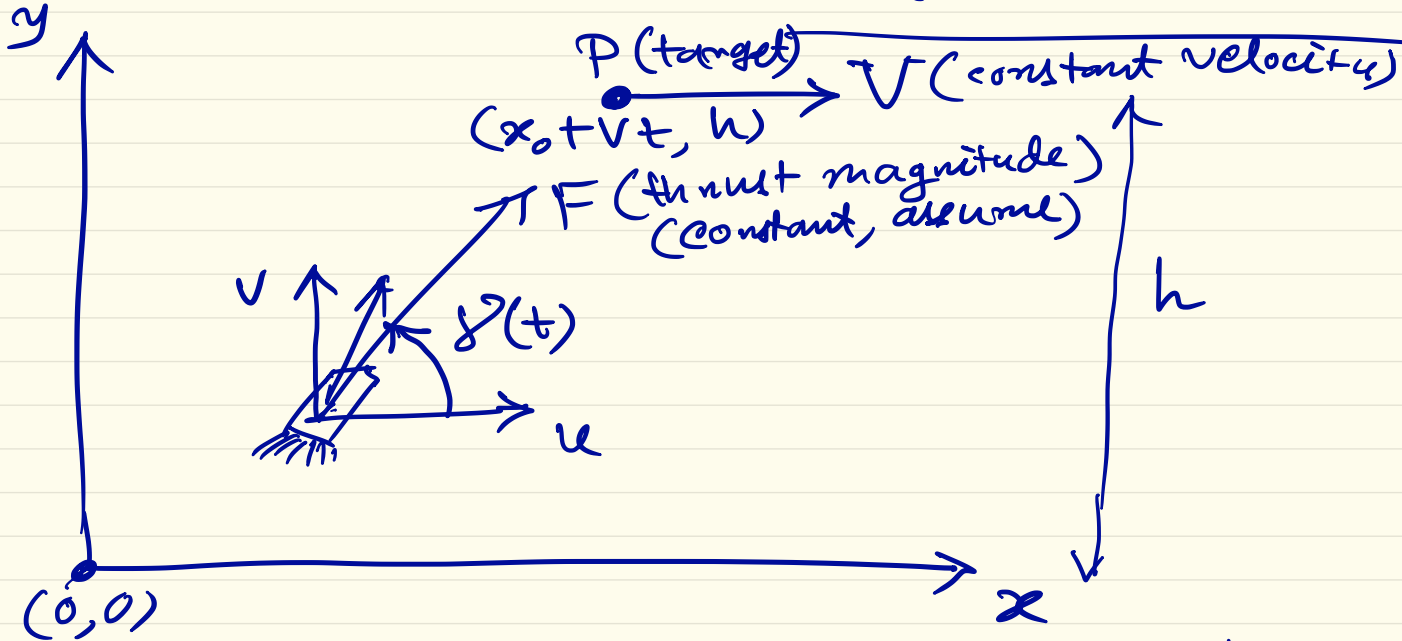 y
P (target)
V (constant velocity)
(x₀+Vt, h)
F (thrust magnitude)
(constant, assume)
v
γ(t)
h
u
(0,0)
x